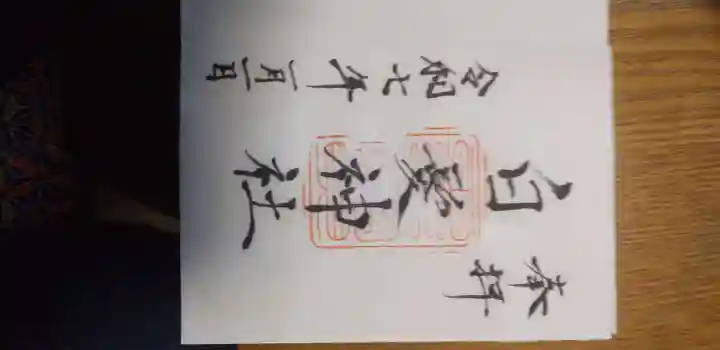 奉拝
白 神社
令和七年一月一日